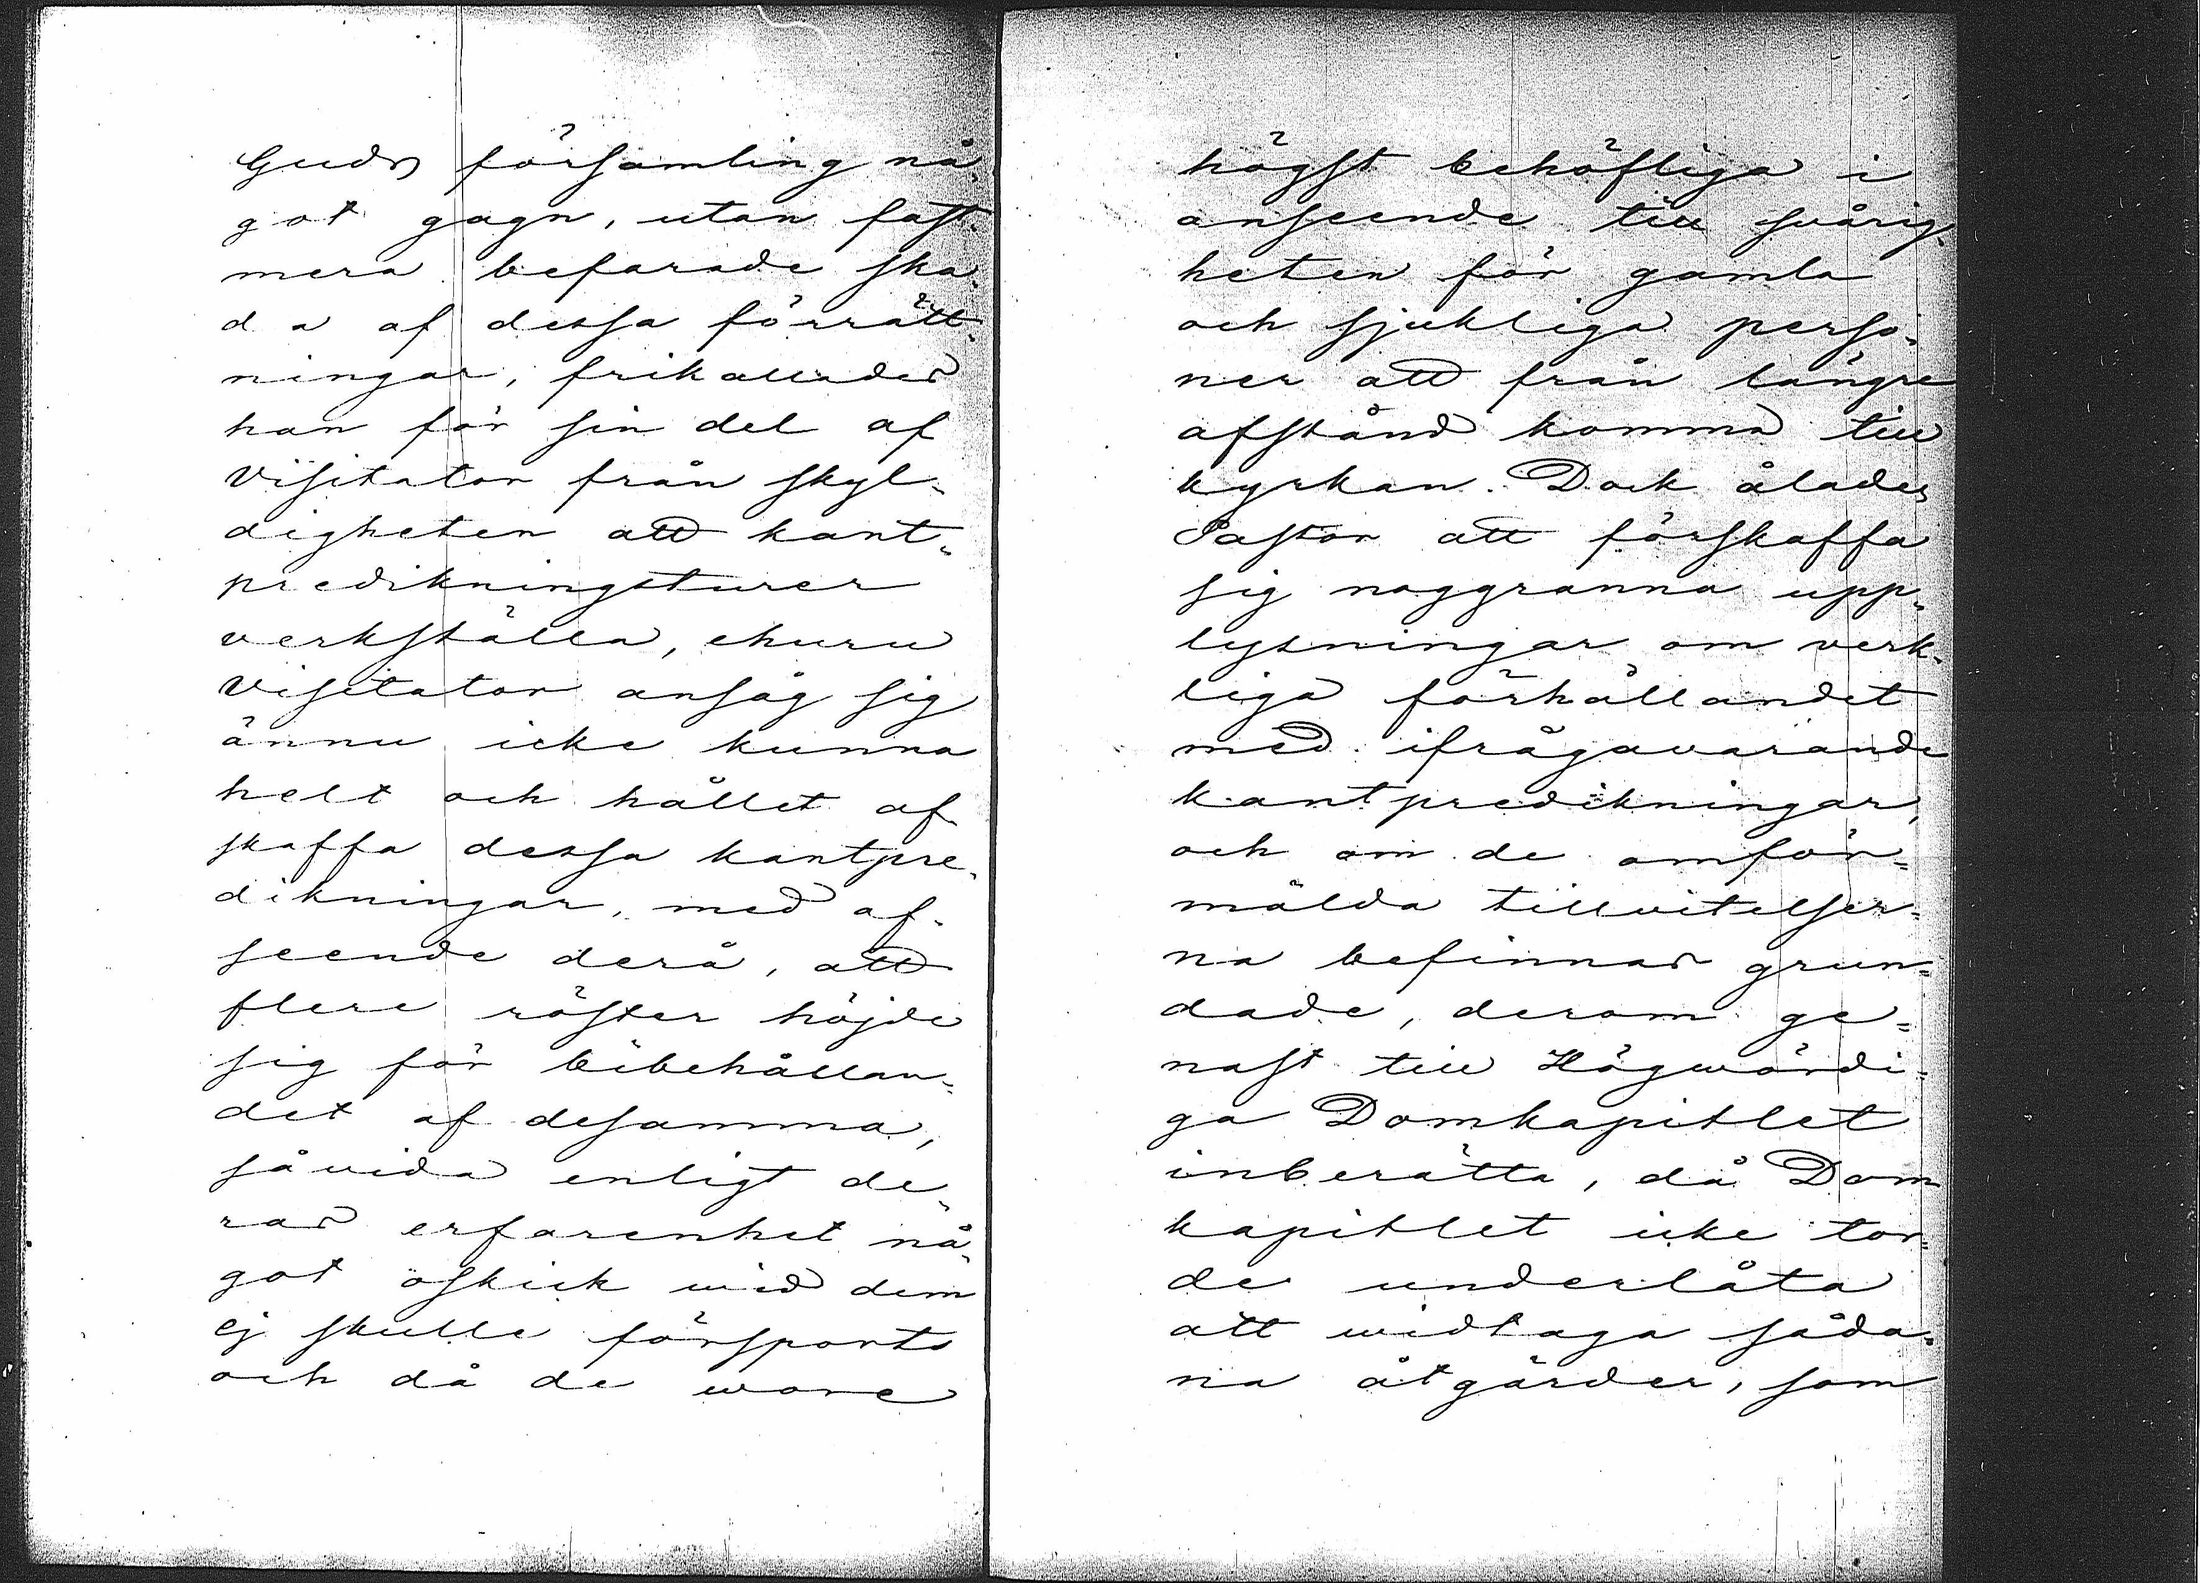 Guds församling nå-
got gagn, utan fast-
mera befarade ska-
da af dessa förrätt-
ningar, frikallades
han för sin del af
Visitator från skyl-
digheten att kant-
predikningsturer
verkställa, ehuru
Visitator ansåg sig
ännu icke kunna
helt och hållet af
skaffa dessa kantpre-
dikningar, med af-
seende derå, att
flere röster höjde
sig för bibehållan-
det af desamma,
såvida enligt de-
ras erfarenhet nå-
got oskick wid dem
ej skulle försports
och då de wore
högst behöfliga i
anseende till svårig-
heten för gamla
och sjukliga perso-
ner att från längre
afstånd komma till
kyrkan. Dock ålades
Pastor att förskaffa
sig noggranna upp-
lysningar om verk-
liga förhållandet
med ifrågavarande
kantpredikningar,
och om de omför=
mälda tillvitelser=
na befinnas grun=
dade, derom ge=
nast till Högwördi=
ga Domkapitlet
inberätta, då Dom
kapitlet icke tor=
de underlåta
att widtaga såda=
na åtgärder, som